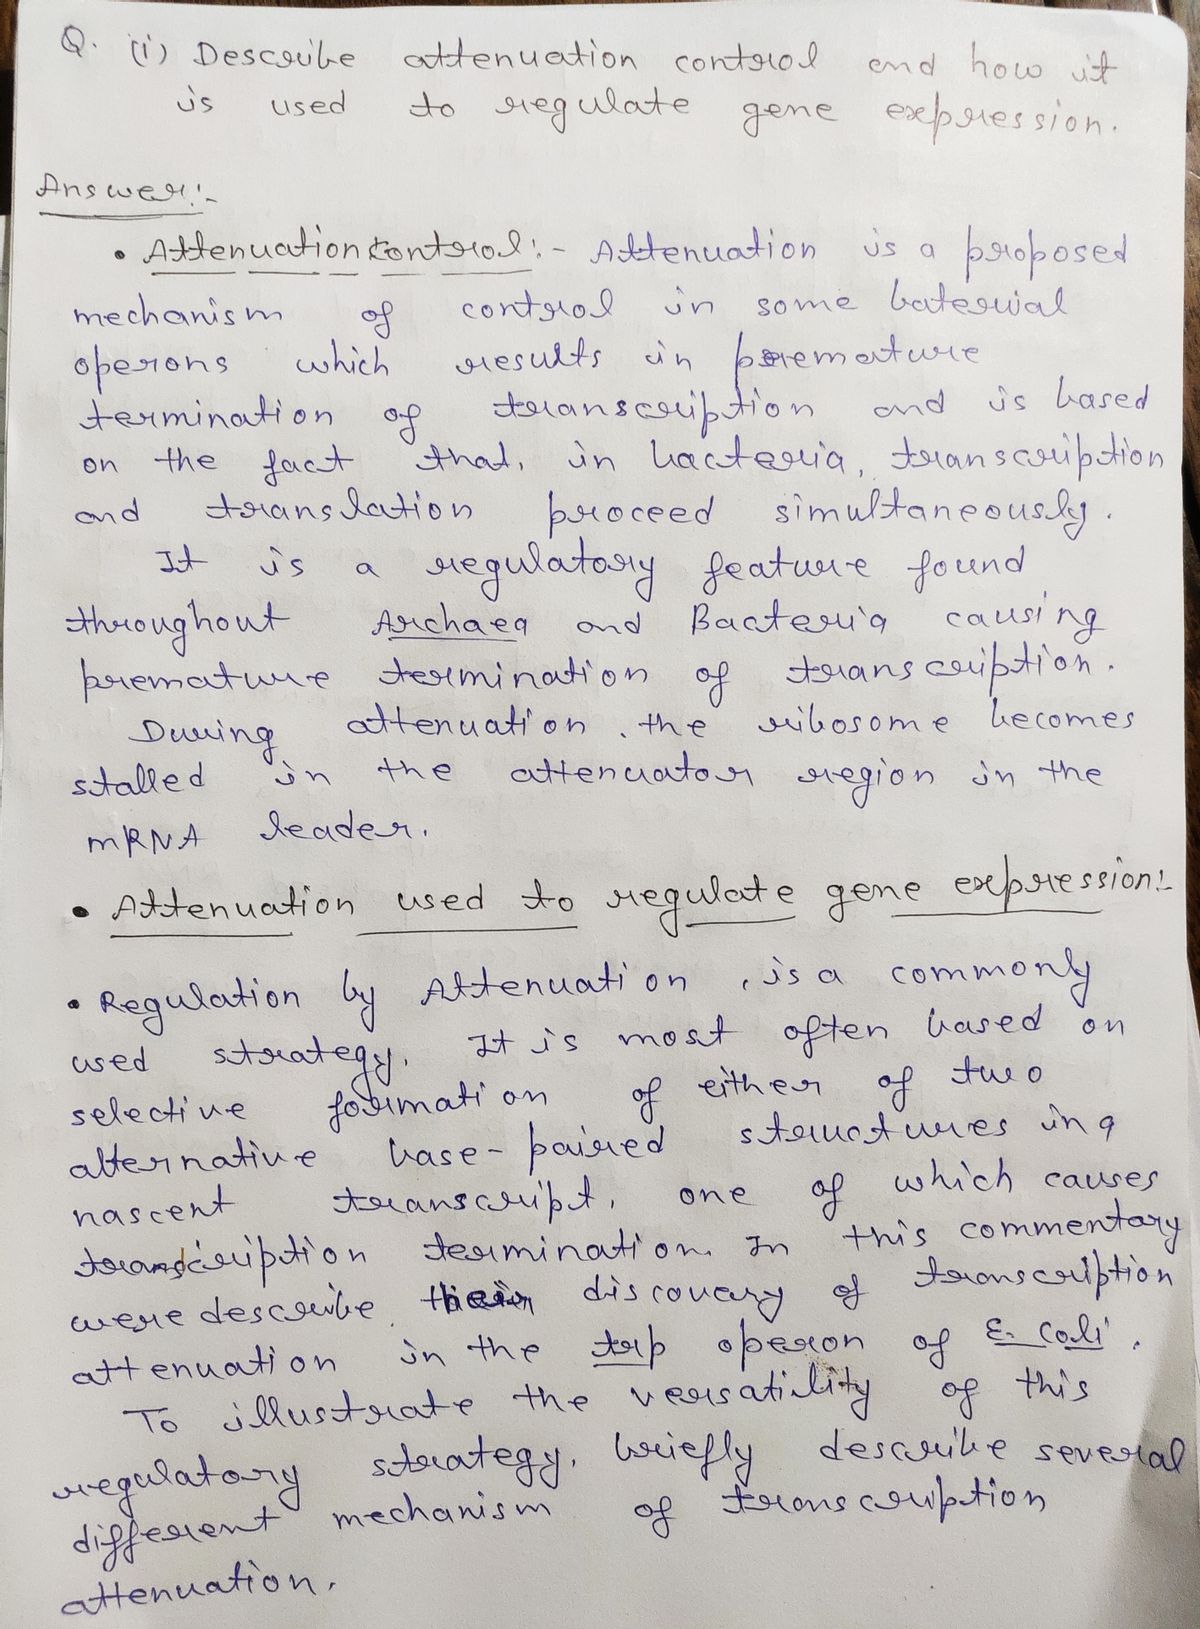 Q. (i) Describe attenuation control and how it
is used to regulate gene expression.
Answer:-
• Attenuation control:- Attenuation is a proposed
mechanism of control in some baterial
operons which results in premature
termination of transcription and is based
on the fact that, in bacteria, transcription
and translation proceed simultaneously.
It is a regulatory feature found
throughout Archaea and Bacteria causing
premature termination of transcription.
During attenuation, the ribosome becomes
stalled in the attenuator region in the
mRNA leader.
• Attenuation used to regulate gene expression:-
• Regulation by Attenuation, is a commonly
used strategy. It is most often based on
selective formation of either of two
alternative base-paired structures in a
nascent transcript, one of which causes
transcription termination. In this commentary
were describe their discovery of transcription
attenuation in the trp operon of E. coli.
To illustrate the versatility of this
regulatory strategy, briefly describe several
different mechanism of transcription
attenuation.